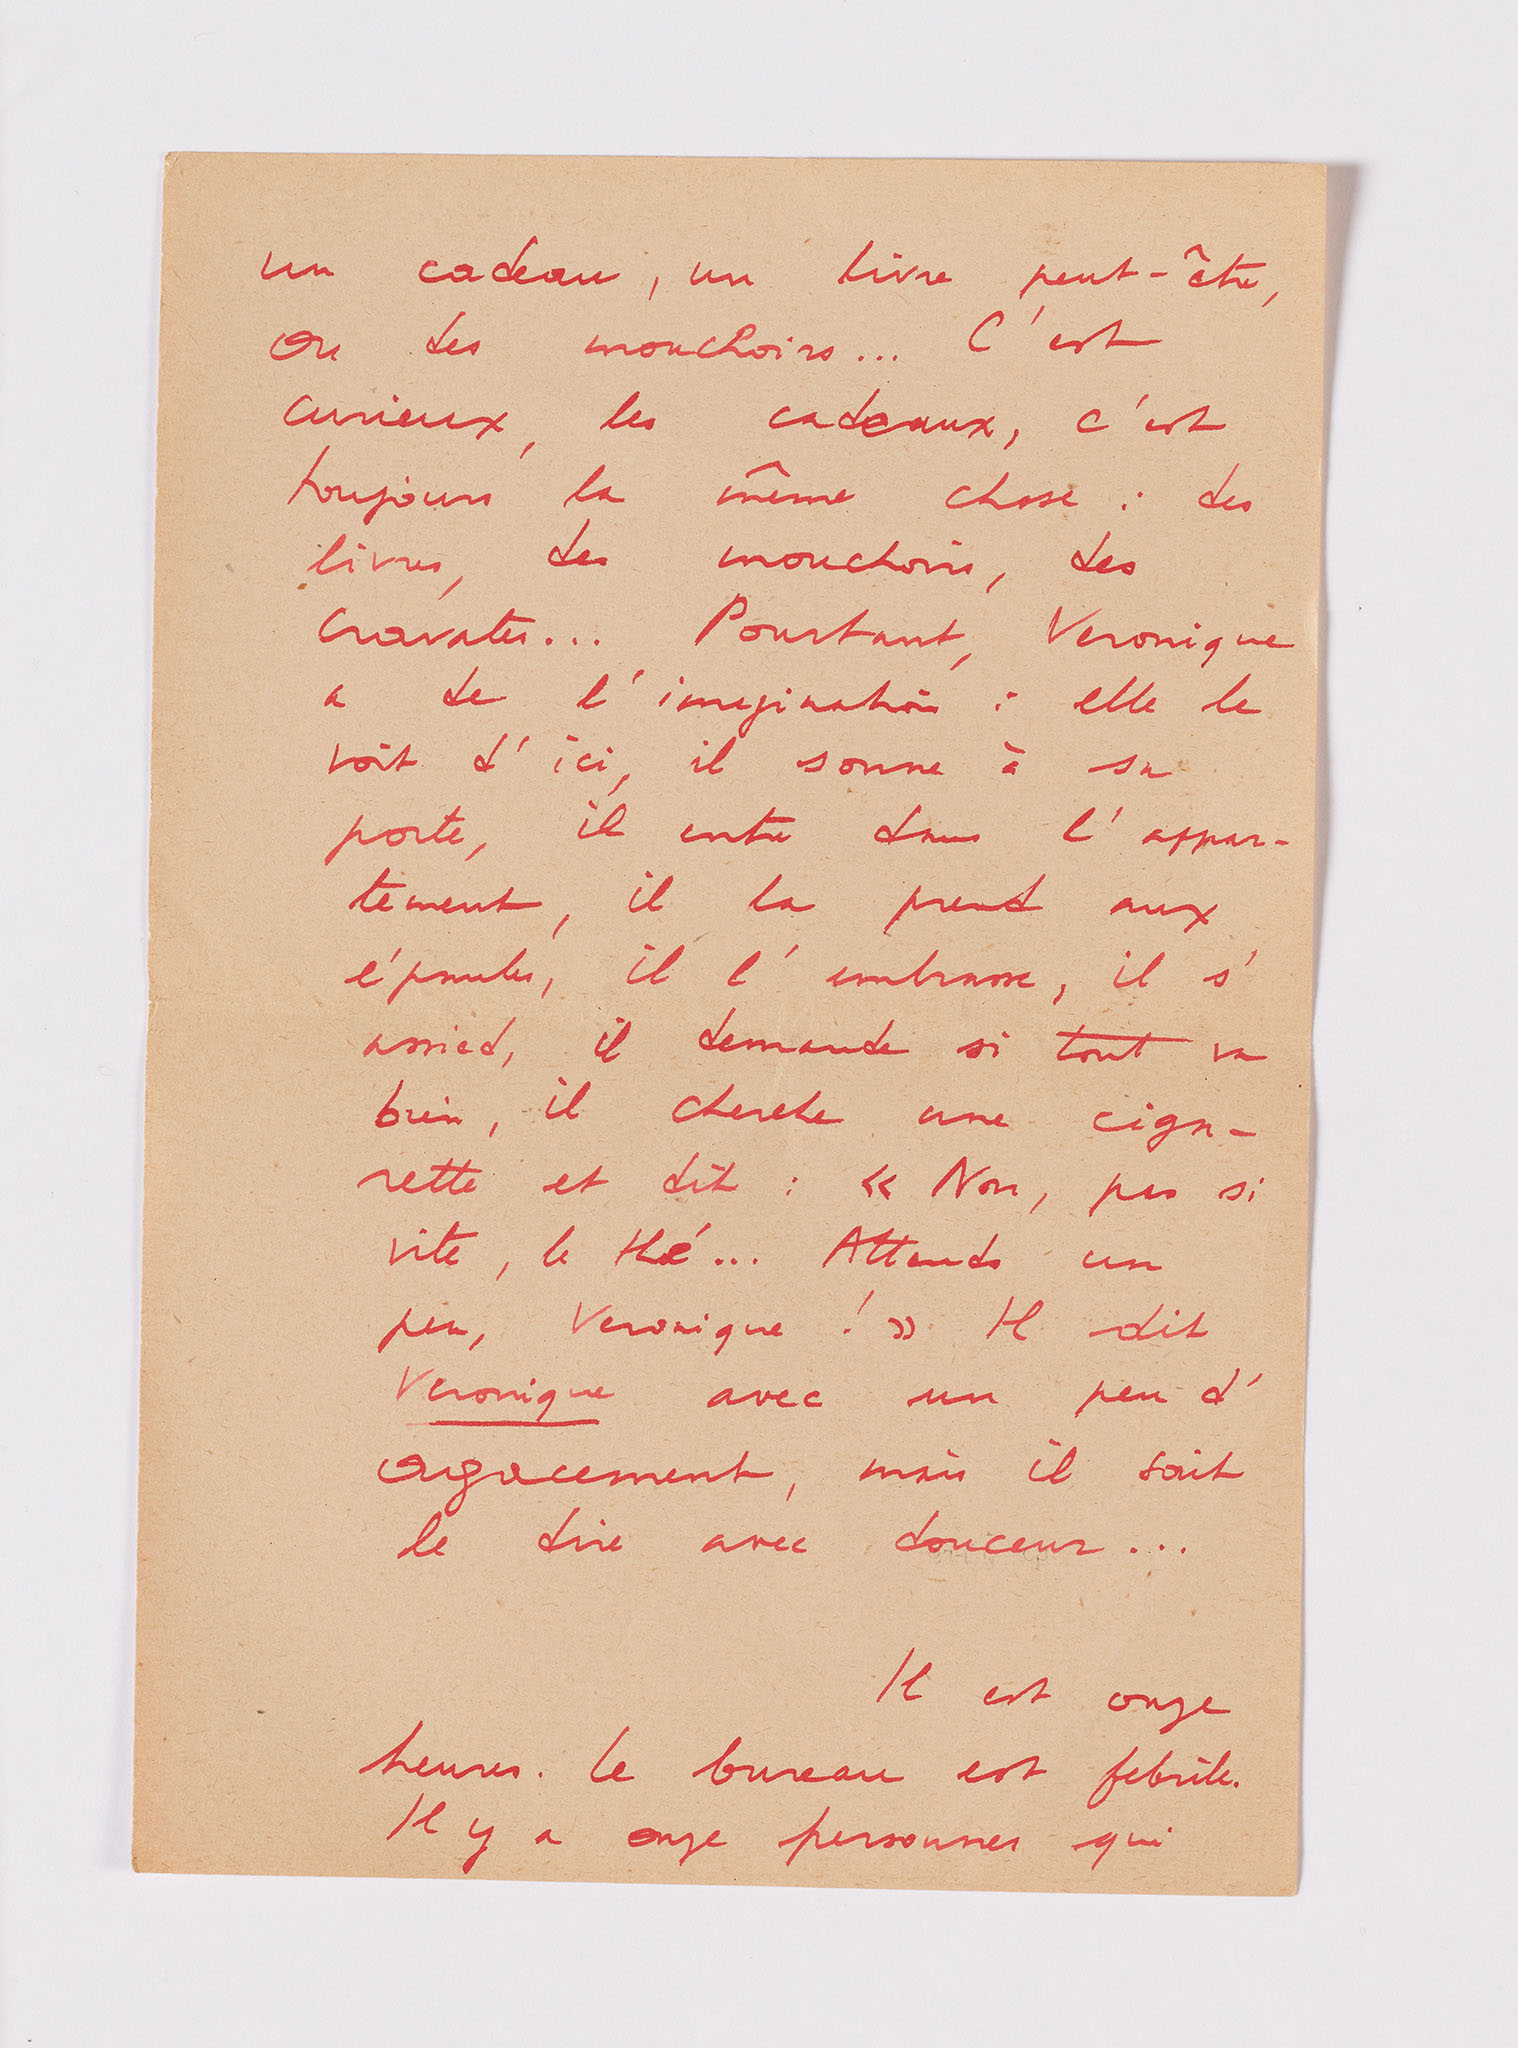 un cadeau, un livre peut-être,
ou des mouchoirs... C'est
curieux, les cadeaux, c'est
toujours la même chose : des
livres, des mouchoirs, des
cravates... Pourtant, Veronique
a de l'imagination : elle le
voit d'ici, il sonne à sa
porte, il entre dans l'appar-
tement, il la prend aux
épaules, il l'embrasse, il s'
assied, il demande si tout va
bien, il cherche une ciga-
rette et dit : « Non, pas si
vite, le thé... Attends un
peu, Veronique ! » Il dit
Veronique avec un peu d'
agacement, mais il sait
le dire avec douceur...
Il est onze
heures. Le bureau est febrile.
Il y a onze personnes qui